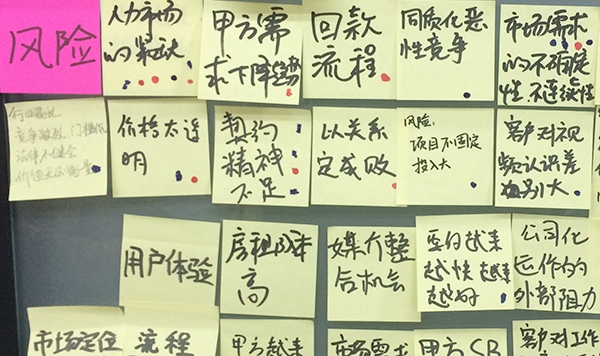 风险
人力市场
的紧缺
甲方需
求下降
回款
流程
同质化恶
性竞争
市场需求
的不确定
性.不连续性
竞争激烈 门槛低
法律不健全
价格太透
明
契约
精神
不足
以关系
定成败
风险:
项目不固定
投入大
客户对视
频认识差
别大
用户体验
房租成本
高
媒介整
合机会
要的越来
越快 越来
越好
公司化
运作的
外部阻力
市场定位
流程
甲方越来
市场需求
甲方SB
客户对工作